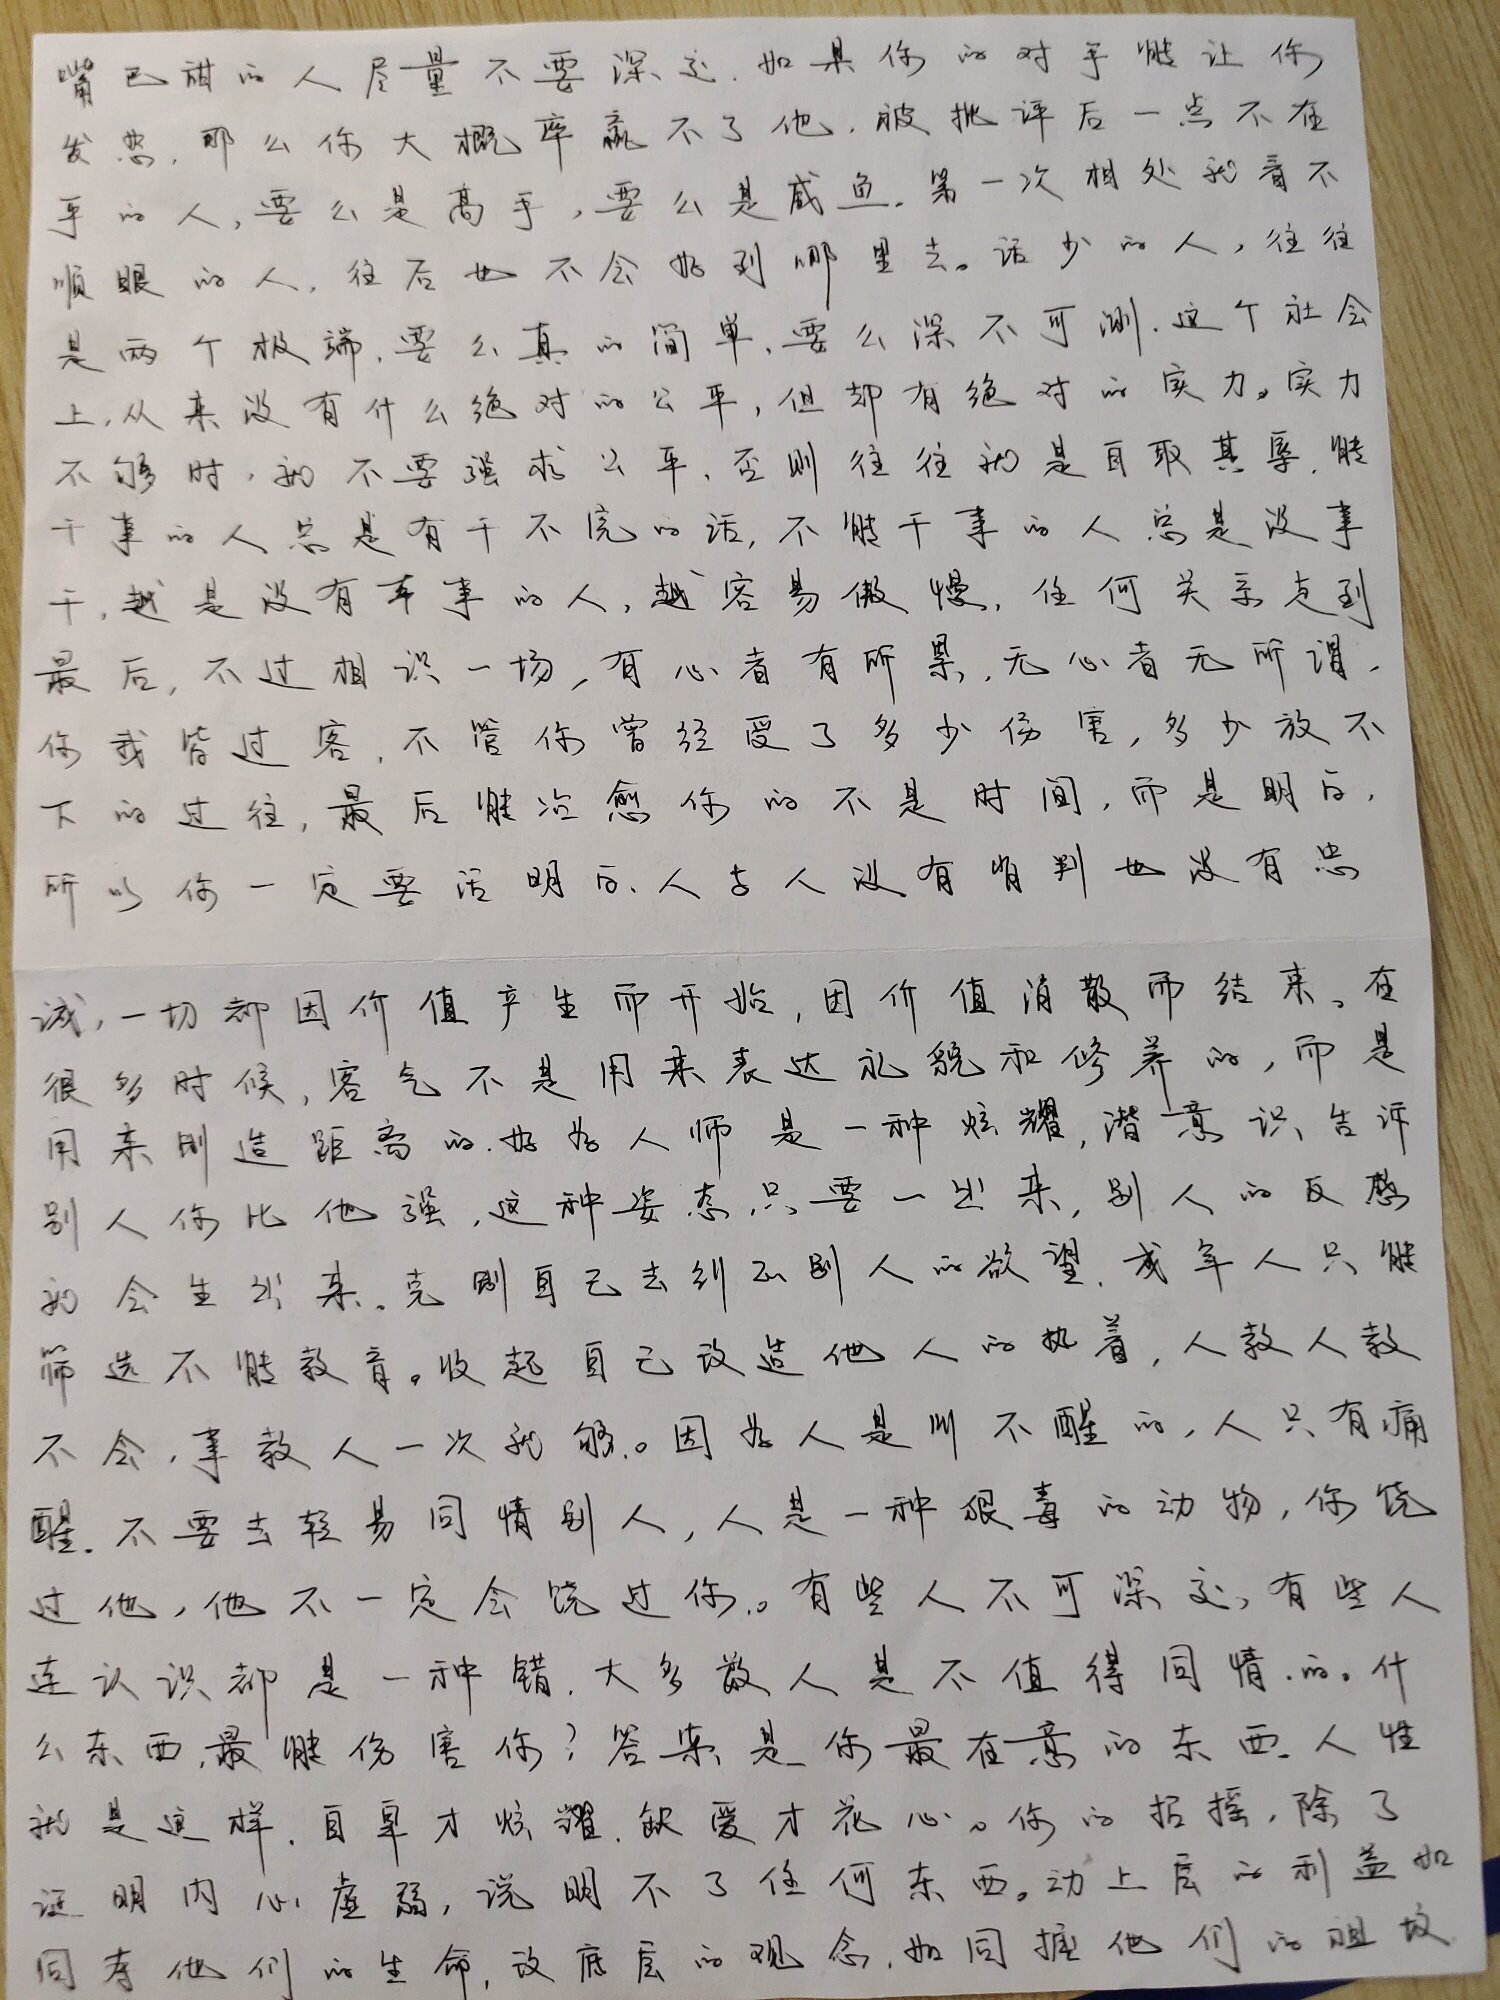 嘴巴甜的人尽量不要深交.如果你的对手能让你
发怒,那么你大概率赢不了他.被批评后一点不在
乎的人,要么是高手,要么是咸鱼.第一次相处就看不
顺眼的人,往后也不会好到哪里去。话少的人,往往
是两个极端,要么真的简单,要么深不可测.这个社会
上,从来没有什么绝对的公平,但却有绝对的实力。实力
不够时,就不要强求公平,否则往往就是自取其辱.能
干事的人总是有干不完的活,不能干事的人总是没事
干,越是没有本事的人,越容易傲慢,任何关系走到
最后,不过相识一场,有心者有所累,无心者无所谓,
你我皆过客,不管你曾经受了多少伤害,多少放不
下的过往,最后能治愈你的不是时间,而是明白,
所以你一定要活明白.人与人没有背判也没有忠
诚,一切都因价值产生而开始,因价值消散而结束。在
很多时候,客气不是用来表达礼貌和修养的,而是
用来制造距离的.好为人师是一种炫耀,潜意识告诉
别人你比他强,这种姿态只要一出来,别人的反感
就会生出来。克制自己去纠正别人的欲望.成年人只能
筛选不能教育。收起自己改造他人的执着,人教人教
不会,事教人一次就够.。因为人是叫不醒的,人只有痛
醒.不要去轻易同情别人,人是一种狠毒的动物,你饶
过他,他不一定会饶过你.。有些人不可深交,有些人
连认识都是一种错.大多数人是不值得同情.的。什
么东西,最能伤害你?答案是你最在意的东西.人性
就是这样.自卑才炫耀.缺爱才花心。你的招摇,除了
证明内心虚弱,说明不了任何东西。动上层的利益如
同夺他们的生命,改底层的观念,如同掘他们的祖坟.